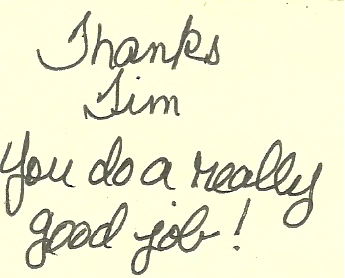 Thanks
Tim
You do a really
good job!